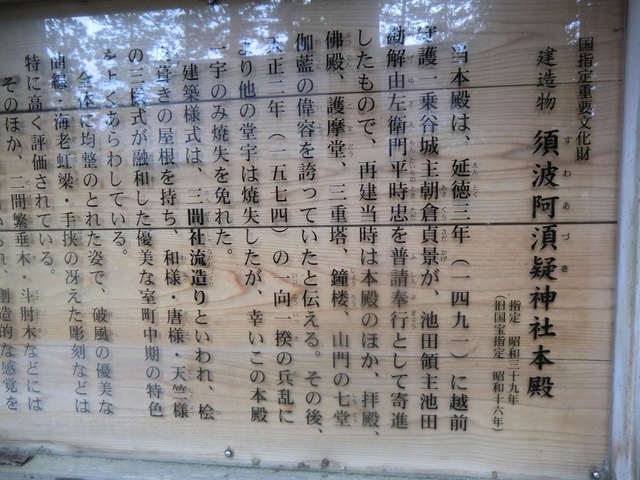 国指定重要文化財
建造物 須波阿湏疑神社本殿
すわあづき
指定 昭和三十九年
(旧国宝指定 昭和十六年)
当本殿は、延徳三年(一四九一)に越前
守護一乗谷城主朝倉貞景が、池田領主池田
勘解由左衛門平時忠を普請奉行として寄進
したもので、再建当時は本殿のほか、拝殿、
佛殿、護摩堂、三重塔、鐘楼、山門の七堂
伽藍の偉容を誇っていたと伝える。その後、
天正二年(一五七四)の一向一揆の兵乱に
より他の堂宇は焼失したが、幸いこの本殿
一宇のみ焼失を免れた。
建築様式は、三間社流造りといわれ、桧
皮葺きの屋根を持ち、和様・唐様・天竺様
の三様式が融和した優美な室町中期の特色
をよくあらわしている。
全体に均整のとれた姿で、破風の優美な
曲線・海老虹梁・手挟の冴えた彫刻などは
特に高く評価されている。
そのほか、二間繁垂木・斗肘木などには
られ、創造的な感覚を